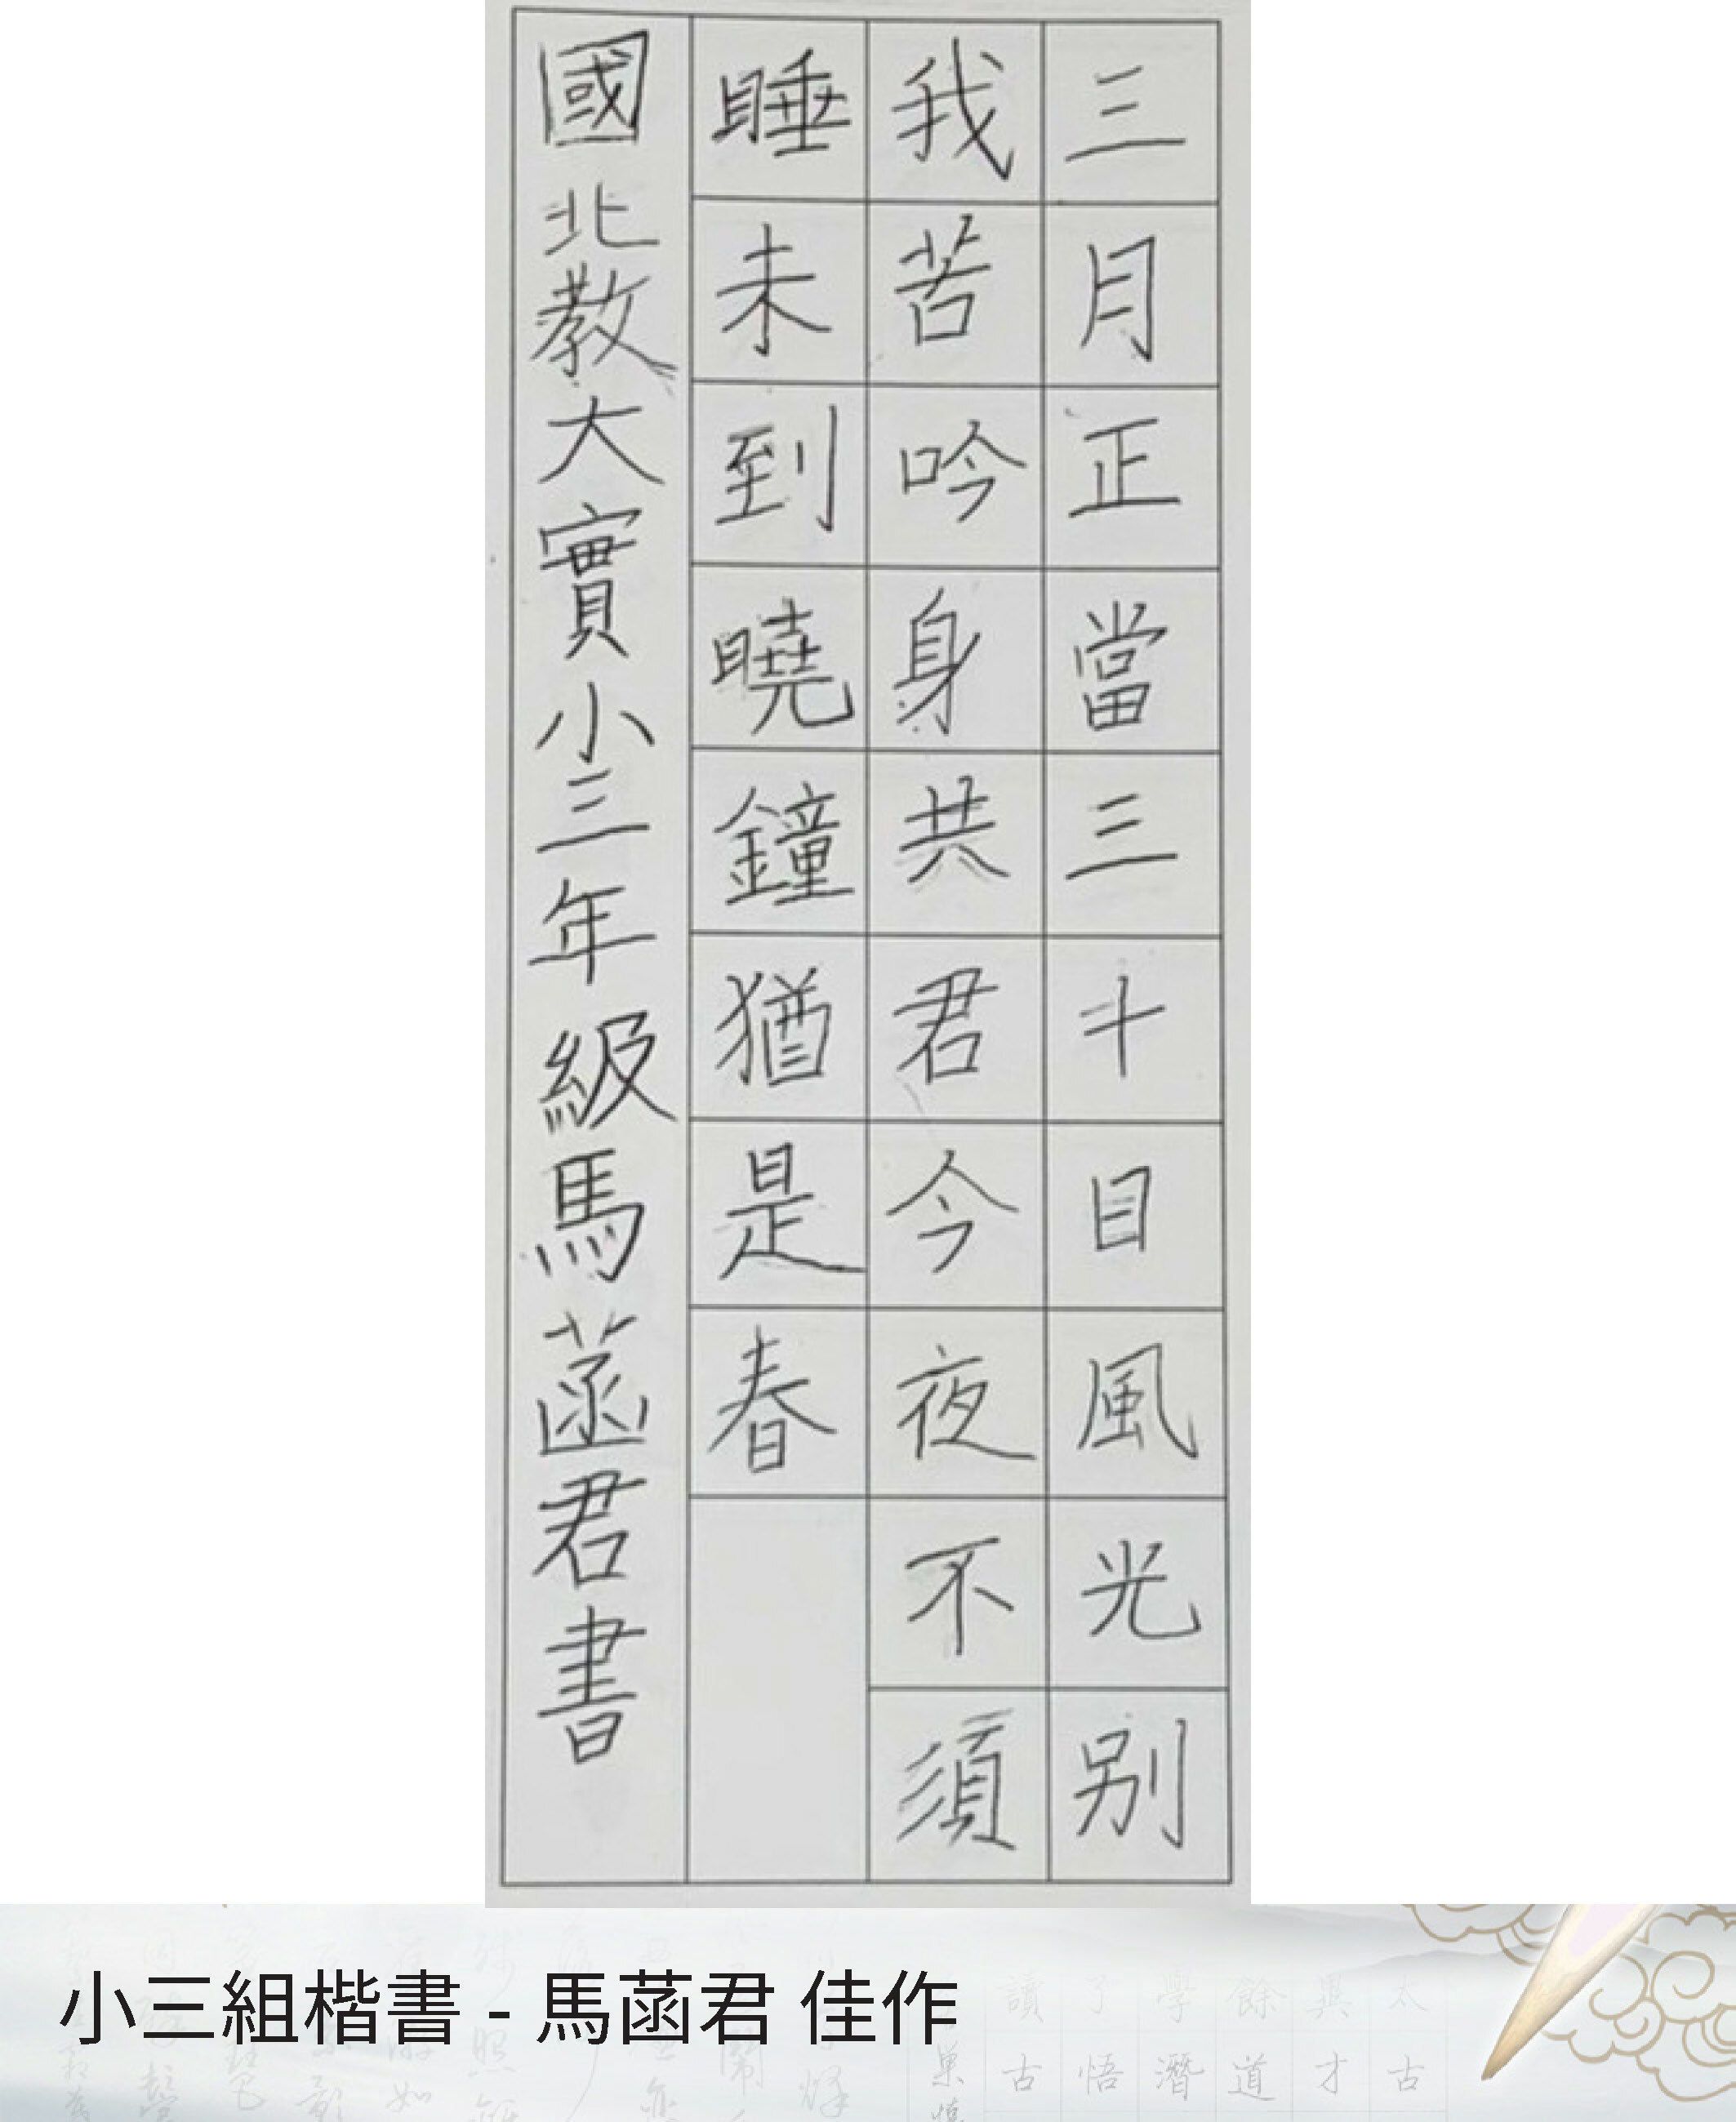 三月正當三十日風光别
我苦吟身共君今夜不須
睡未到曉鐘猶是春
國北教大實小三年級馬菡君書
小三組楷書 - 馬菡君 佳作